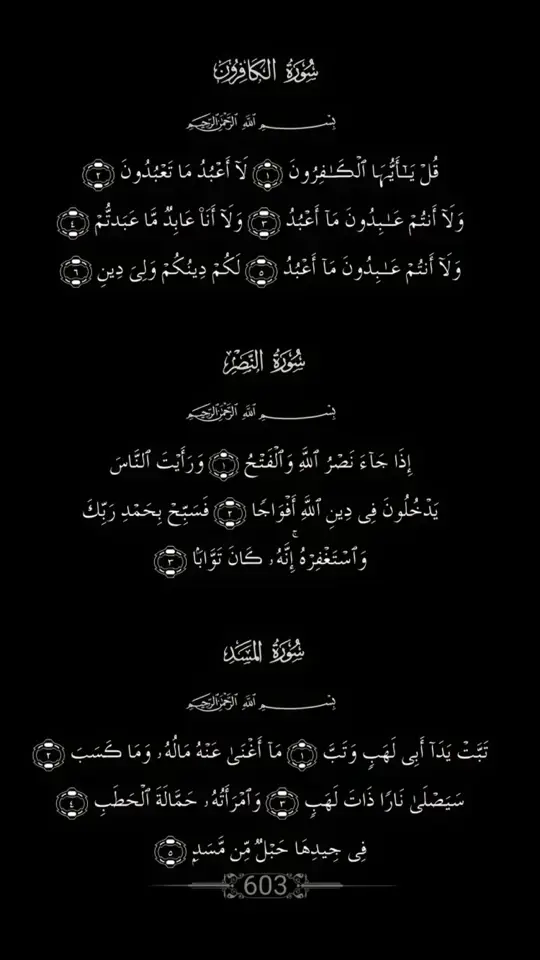 سُورَةُ الكَافِرُونَ
بِسْمِ ٱللَّهِ ٱلرَّحْمَٰنِ ٱلرَّحِيمِ
قُلْ يَـٰٓأَيُّهَا ٱلْكَـٰفِرُونَ ١ لَآ أَعْبُدُ مَا تَعْبُدُونَ ٢
وَلَآ أَنتُمْ عَـٰبِدُونَ مَآ أَعْبُدُ ٣ وَلَآ أَنَا۠ عَابِدٌ مَّا عَبَدتُّمْ ٤
وَلَآ أَنتُمْ عَـٰبِدُونَ مَآ أَعْبُدُ ٥ لَكُمْ دِينُكُمْ وَلِىَ دِينِ ٦
سُورَةُ النَّصْرِ
بِسْمِ ٱللَّهِ ٱلرَّحْمَٰنِ ٱلرَّحِيمِ
إِذَا جَآءَ نَصْرُ ٱللَّهِ وَٱلْفَتْحُ ١ وَرَأَيْتَ ٱلنَّاسَ
يَدْخُلُونَ فِى دِينِ ٱللَّهِ أَفْوَاجًا ٢ فَسَبِّحْ بِحَمْدِ رَبِّكَ
وَٱسْتَغْفِرْهُ ۚ إِنَّهُۥ كَانَ تَوَّابًۢا ٣
سُورَةُ المَسَدِ
بِسْمِ ٱللَّهِ ٱلرَّحْمَٰنِ ٱلرَّحِيمِ
تَبَّتْ يَدَآ أَبِى لَهَبٍ وَتَبَّ ١ مَآ أَغْنَىٰ عَنْهُ مَالُهُۥ وَمَا كَسَبَ ٢
سَيَصْلَىٰ نَارًا ذَاتَ لَهَبٍ ٣ وَٱمْرَأَتُهُۥ حَمَّالَةَ ٱلْحَطَبِ ٤
فِى جِيدِهَا حَبْلٌ مِّن مَّسَدٍۭ ٥
603